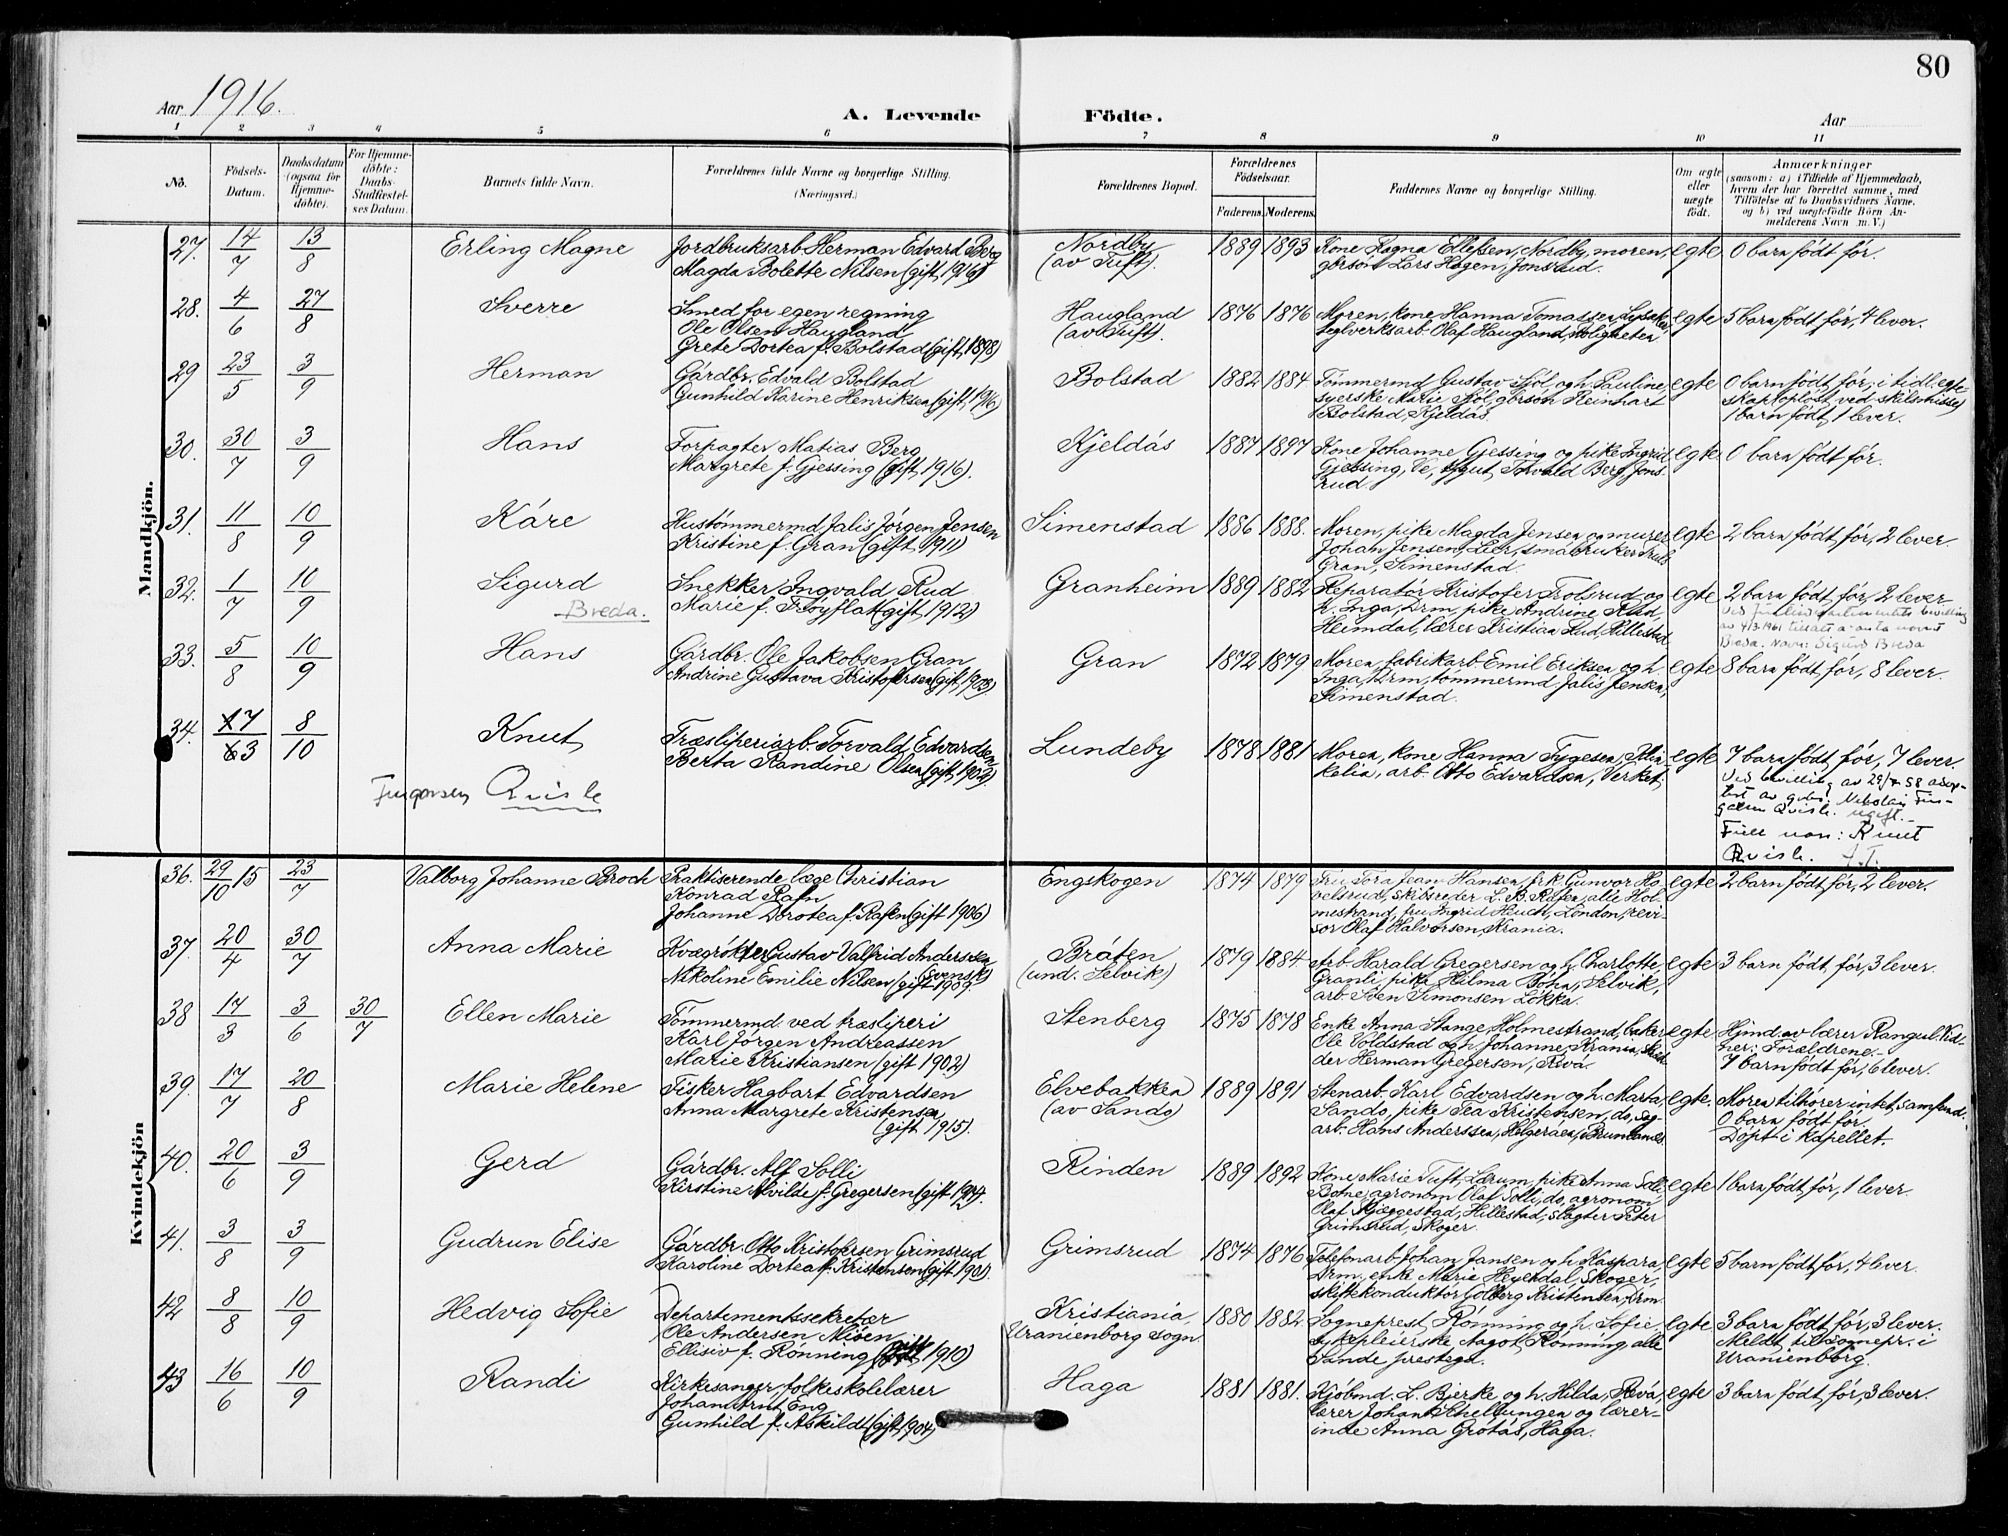 80
Aar 1916.
A. Levende Födte.
Aar
1 2 3 4 5 6 7 8 9 10 11
No.
Födsels-Datum.
Daabsdatum (ogsaa for Hjemme-döbte).
For Hjemme-döbte: Daabs Stadfæstel-ses Datum.
Barnets fulde Navn.
Forældrenes fulde Navne og borgerlige Stilling.
(Næringsvei.)
Forældrenes Bopæl.
Forældrenes Födselsaar.
Faderens. Moderens.
Faddernes Navne og borgerlige Stilling.
Om ægte eller uægte födt.
Anmærkninger
(saasom: a) i Tilfælde af Hjemmedaab,
hvem der har forrettet samme, med
Tilföielse af to Daabsvidners Navne.
og b) ved uægtefödte Börn An-
melderens Navn m. V.)
Mandkjön.
27. 14/7 13/8 Erling Magne Jordbruksarb. Herman Edvard Berg Nordby 1889 1893 Kone Ragna Ellefsen, Nordby, moren, egte 0 barn født før.
Magda Bolette Nilsen (gift 1916) (av Tuft). gbrsøn Lars Hagen, Jonsrud.
28. 4/6 27/8 Sverre Smed for egen regning Haugland 1876 1876 Moren, kone Hanna Tomassen, egte 5 barn født før, 4 lever.
Ole Olsen Haugland (av Tuft). Olaf Haugland,
Grete Dortea f. Bolstad (gift 1898)
29 23/5 3/9 Herman Gårdbr. Edvald Bolstad Bolstad 1882 1884 Tømmermd Gustav Sjøl og h. Pauline, egte 0 barn født før; i tidl. egte-
Gunhild Karine Henriksen (gift 1916) syerske Marie Sjøl, gbrsøn Reinhart skap opløst ved skilsmisse
Bolstad, Kjeldås. 1 barn født, 1 lever.
30. 30/7 3/9 Hans Forpagter Matias Berg Kjeldås 1887 1897 Kone Johanne Gjessing og pike Ingrid egte 0 barn født før.
Margrete f. Gjessing (gift 1916). Gjessing, Torvald Berg, Jons-
rud
31. 11/8 10/9 Kåre Hustømmermd Jalis Jørgen Jensen Simenstad 1886 1888. Moren, pike Magda Jensen og murer egte 2 barn født før, 2 lever.
Kristine f. Gran (gift 1911) Johan Jensen, Lier, småbruker
Gran, Simenstad.
32. 1/7 10/9 Sigurd Snekker Ingvald Rud Granheim 1889 1882 Reparatør Kristofer Trolsrud og egte 2 barn født før, 2 lever
Breda. Marie f. Frøyflat (gift 1912) h. Inga, Drm, pike Andrine Rud, bevilling
Heimdal, lærer Kristian Rud, Hillestad av 4/3-1961 tillatt å anta navnet
Breda. Navn: Sigurd Breda
33. 5/8 10/9 Hans Gårdbr. Ole Jakobsen Gran Gran 1872 1879 Moren, fabrikarb. Emil Eriksen og h. egte 8 barn født før, 8 lever.
Andrine Gustava Kristofersen (gift 1903) Inga, Drm, tømmermd Jalis Jensen,
Simenstad.
34. 17/63 8/10 Knut Træsliperiarb. Torvald Edvardsen Lundeby 1878 1881 Moren, kone Hanna Tygesen, egte 7 barn født før, 7 lever.
Berta Randine Olsen (gift 1902) arb. Otto Edvardsen, Verket. Ved bevilling av 29/7-58 adop-
Fingarsen Qvisle tert av gbr. Nikolai Fin-
garsen Qvisle. ugift.
Fullt navn: Knut
Qvisle. J.T.
Kvindekjön
36. 29/10 15 23/7 Valborg Johanne Broch Praktiserende læge Christian Engskogen 1874 1879 Fru Tora Hansen, frk. Gunvor Ho- egte 2 barn født før, 2 lever.
Konrad Rafn velsrud, skibsreder L. B. Rafen, alle Hol-
Johanne Dorotea f. Rafen (gift 1906) mestrand, fru Ingrid Heuch, London, revi-
sor Olaf Halvorsen, Krania.
37. 20/4 30/7 Anna Marie Kvægrøkter Gustav Valfrid Anderssen Bråten 1879 1884. Arb. Harald Gregersen og h. Charlotte, egte 3 barn født før, 3 lever.
(svensk) (und. Selvik) Granli, pike Hilma Selvik,
Nikoline Emilie Nilsen (gift 1909. arb. Sven Simonsen Løkka.
38 17/3 3/6 30/7 Ellen Marie Tømmermd. ved træsliperi Stenberg 1875 1878 Enke Anna Stange, Holmestrand, baker egte Hjmd. av lærer Rangul. Vid-
Karl Jørgen Andreassen Ole Voldstad og h. Johanne, Krania, ner: Forældrene.-
Marie Kristiansen (gift 1902) der Herman Gregersen, Revå. 7 barn født før, 6 lever.
39. 17/7 20/8 Marie Helene Fisker Hagbart Edvardsen Elvebakken 1889 1891 Stenarb. Karl Edvardsen og h. Marta, egte. Moren tilhører intet samfund.
Anna Margrete Kristensen (av Sando) Sando, pike Lea Kristensen, do, sag- 0 barn født før.
(gift 1915). arb. Hans Anderssen, Helgeråen, Brunlanes Døpt i kapellet.
40. 20/6 3/9 Gerd Gårdbr. Alf Solli Rinden 1889 1892 Kone Marie Tuft, Lærum, pike Anna Solli, egte 1 barn født før, 1 lever.
Kirstine Alvilde f. Gregersen (gift 1914. Botne, agronom Olaf Solli, do, agronom
Olaf Kjeggestad, Hillestad, slagter Peter
Grimsrud, Skoger.
41. 3/8 3/9 Gudrun Elise Gårdbr. Otto Kristofersen Grimsrud Grimsrud 1874 1876 Telefonarb. Johan Jansen og h. Kaspara, egte 5 barn født før, 4 lever.
Karoline Dortea f. Kristensen (gift 1901). Drm, enke Marie Heyerdal, Skoger,
skiftekonduktør Golberg Kristensen, Drm.
42 8/8 10/9 Hedvig Sofie Departementssekretær Kristiania, 1880 1882 Sogneprest Rønning og h. Sofie, egte 3 barn født før, 3 lever.
Ole Andersen Miøen Uranienborg sogn sykepleierske Aagot Rønning, alle Meldt til sognepr. i
Ellisiv f. Rønning (gift 1910) Sande prestegd. Uranienborg.
43 16/6 10/9 Randi Kirkesanger, folkeskolelærer Haga 1881 1881. Kjøbmd. L. Bjerke og h. Hilda, Revå, egte 3 barn født før, 3 lever.
Johan Arnt Eng lærer Johan Schellungen og lærer-
Gunhild f. Askildt (gift 1904) inde Anna Grøtås, Haga.